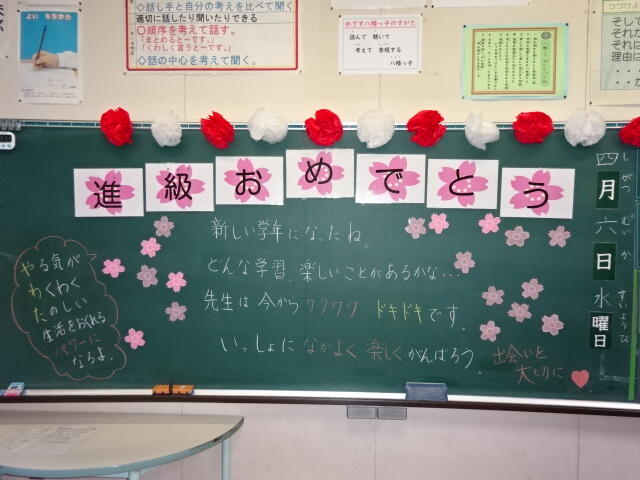 よい もちかた
◇話し手と自分の考えを比べて聞く
適切に話したり聞いたりできる
〇順序を考えて話す。
「まとめると～です。」
「くわしく言うと～です。」
◇話の中心を考えて聞く。
めざす八幡っ子のすがた
読んで 聴いて
考えて 表現する
八幡っ子
つづけよ
そして
それか
それに
理由は
進級おめでとう
新しい学年になったね。
どんな学習、楽しいことがあるかな….
先生は 今から ワクワク ドキドキです。
いっしょに なかよく 楽しく がんばろう。
出会いを
大切に
やる気が
わくわく
たのしい
生活をおくれる
パワーに
なるよ。
四月六日水曜日
しがつ むいか すいようび